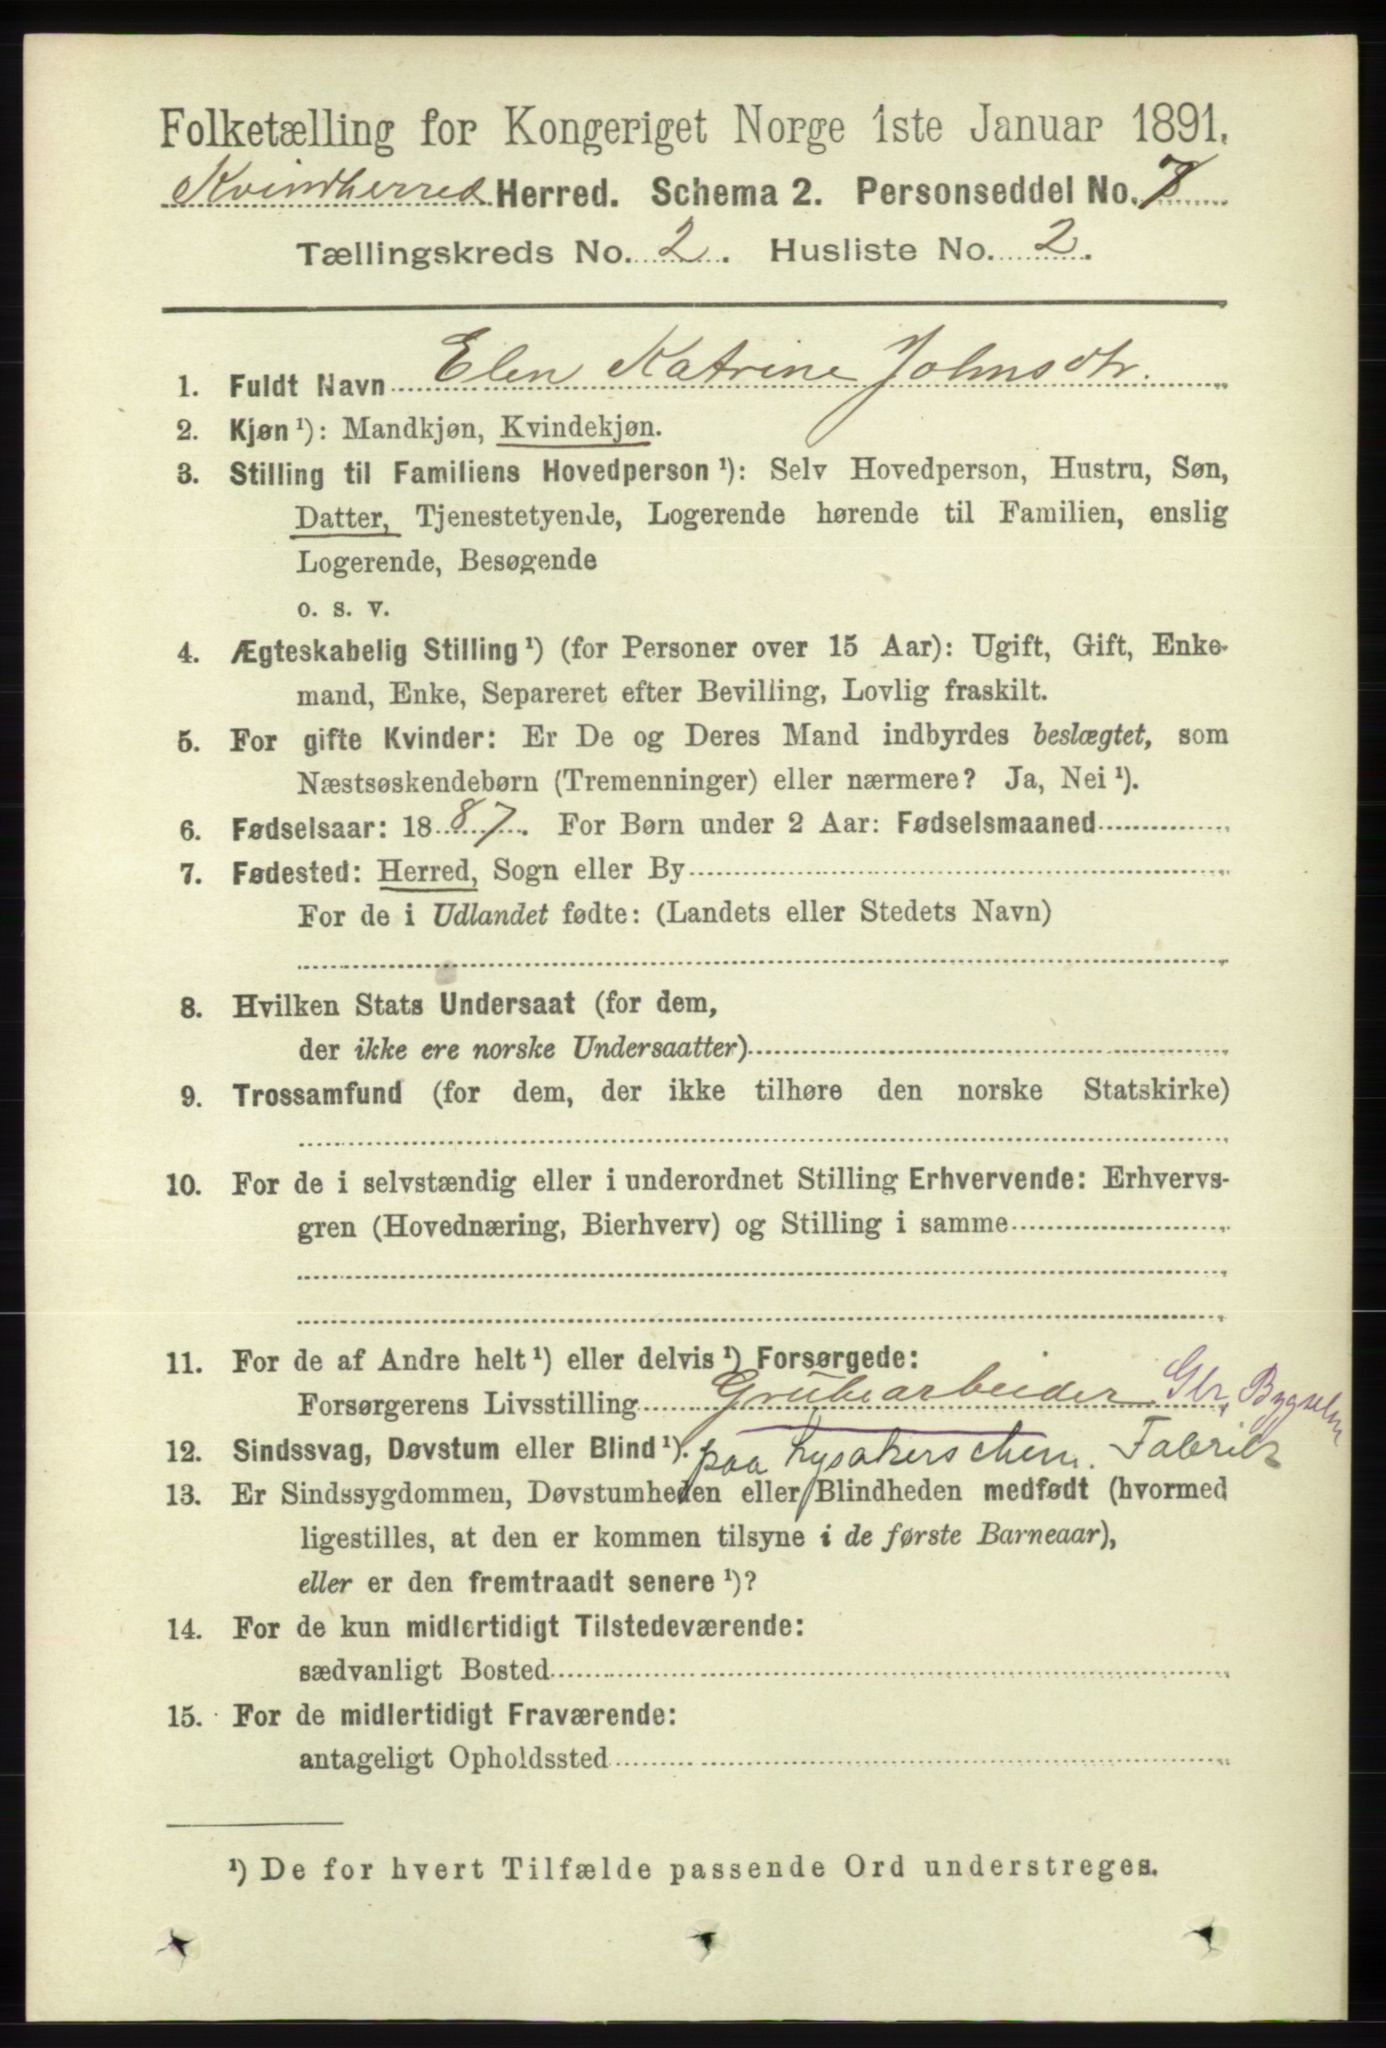 Folketælling for Kongeriget Norge 1ste Januar 1891.
Kvindherred Herred. Schema 2. Personseddel No. 7
Tællingskreds No. 2. Husliste No. 2.
1. Fuldt Navn Elen Katrine Johnsdtr.
2. Kjøn ¹): Mandkjøn, Kvindekjøn.
3. Stilling til Familiens Hovedperson ¹): Selv Hovedperson, Hustru, Søn,
Datter, Tjenestetyende, Logerende hørende til Familien, enslig
Logerende, Besøgende
o. s. v.
4. Ægteskabelig Stilling ¹) (for Personer over 15 Aar): Ugift, Gift, Enke-
mand, Enke, Separeret efter Bevilling, Lovlig fraskilt.
5. For gifte Kvinder: Er De og Deres Mand indbyrdes beslægtet, som
Næstsøskendebørn (Tremenninger) eller nærmere? Ja, Nei ¹).
6. Fødselsaar: 1887. For Børn under 2 Aar: Fødselsmaaned
7. Fødested: Herred, Sogn eller By
For de i Udlandet fødte: (Landets eller Stedets Navn)
8. Hvilken Stats Undersaat (for dem,
der ikke ere norske Undersaatter)
9. Trossamfund (for dem, der ikke tilhøre den norske Statskirke)
10. For de i selvstændig eller i underordnet Stilling Erhvervende: Erhvervs-
gren (Hovednæring, Bierhverv) og Stilling i samme
11. For de af Andre helt ¹) eller delvis ¹) Forsørgede:
Forsørgerens Livsstilling Grubearbeider
12. Sindssvag, Døvstum eller Blind ¹). paa Lysakers chem. Fabrik
13. Er Sindssygdommen, Døvstumheden eller Blindheden medfødt (hvormed
ligestilles, at den er kommen tilsyne i de første Barneaar),
eller er den fremtraadt senere ¹)?
14. For de kun midlertidigt Tilstedeværende:
sædvanligt Bosted
15. For de midlertidigt Fraværende:
antageligt Opholdssted
¹) De for hvert Tilfælde passende Ord understreges.